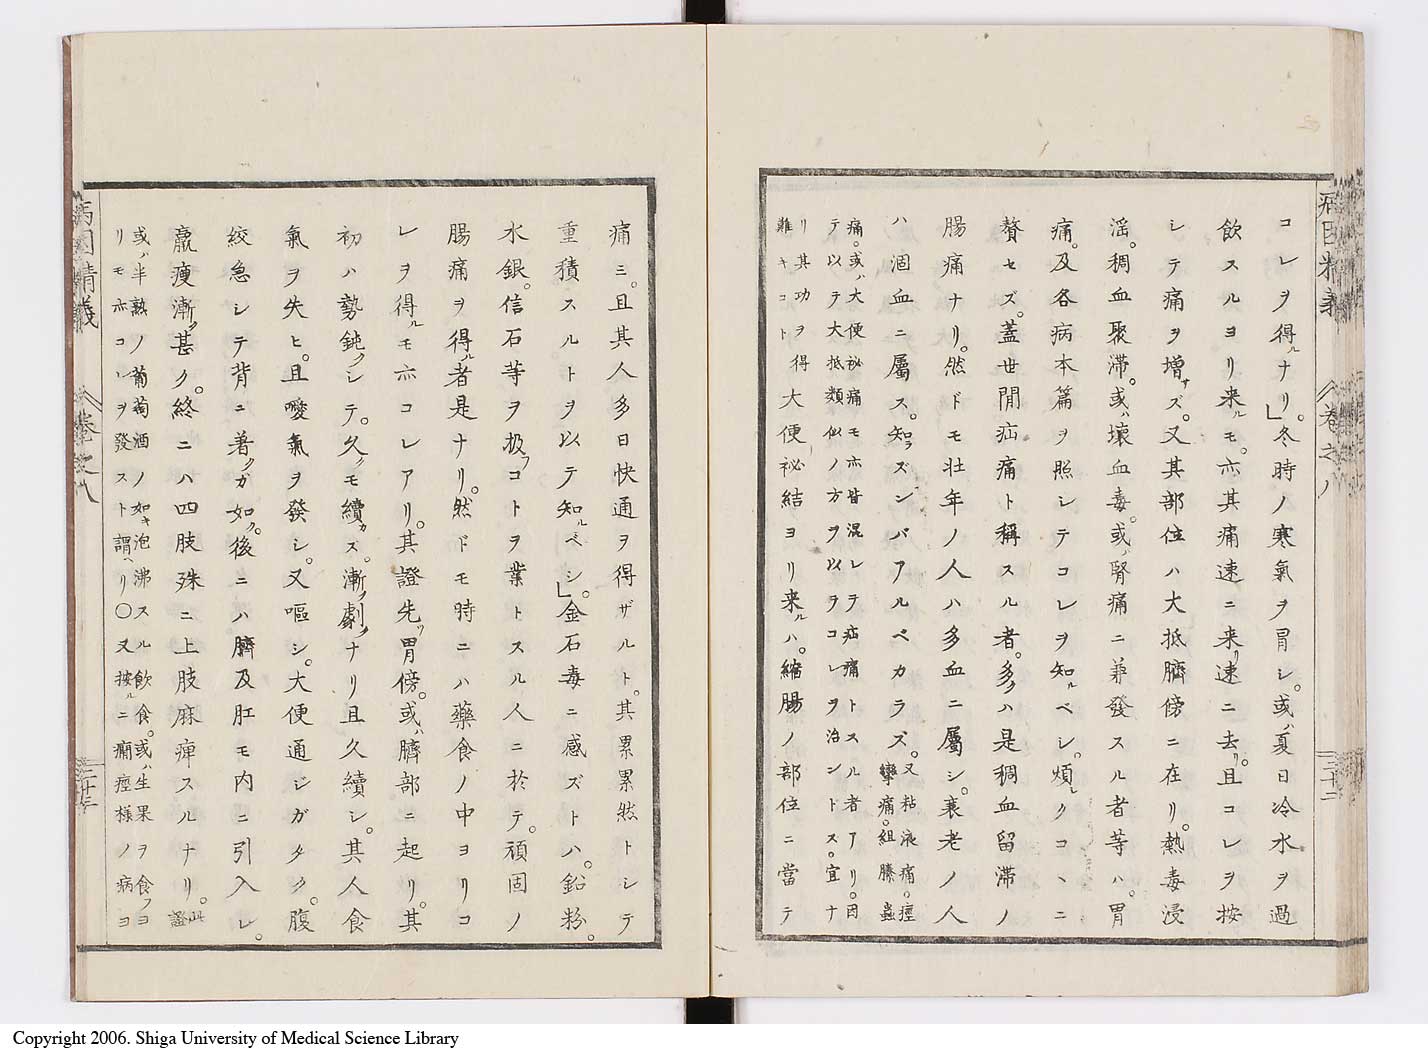 病因精義 卷之八 三十二
コレヲ得ルナリ。」冬時ノ寒氣ヲ冒シ。或ハ夏日冷水ヲ過
飲スルヨリ来ルモ。亦其痛速ニ来リ速ニ去リ。且コレヲ按
シテ痛ヲ増サズ。又其部位ハ大抵臍傍ニ在リ。熱毒浸
淫。稠血聚滞。或ハ壞血毒。或ハ腎痛ニ兼發スル者等ハ。胃
痛。及各病本篇ヲ照シテコレヲ知ルベシ。煩シクコヽニ
贅セズ。蓋世間疝痛ト稱スル者。多クハ是稠血留滞ノ
腸痛ナリ。然ドモ壮年ノ人ハ多血ニ屬シ。衰老ノ人
ハ涸血ニ屬ス。知ラズンバアルベカラズ。又粘液痛。痙
攣痛。組膝蟲
痛。或ハ大便祕痛モ亦皆混レテ疝痛トスル者アリ。因
テ以テ大抵類似ノ方ヲ以ヲコレヲ治ントス。宜ナ
リ其功ヲ得
難キコト
大便祕結ヨリ来ルハ。縮腸ノ部位ニ當テ
痛ミ。且其人多日快通ヲ得ザルト。其累累然トシテ
重積スルトヲ以テ知ルベシ。」金石毒ニ感ズトハ。鉛粉。
水銀。信石等ヲ扱フコトヲ業トスル人ニ於テ。頑固ノ
腸痛ヲ得ル者是ナリ。然ドモ時ニハ藥食ノ中ヨリコ
レヲ得ルモ亦コレアリ。其證先ヅ胃傍。或ハ臍部ニ起リ。其
初ハ勢鈍クシテ。久クモ續カズ。漸ク劇クナリ且久續シ。其人食
氣ヲ失ヒ。且噯氣ヲ發シ。又嘔シ。大便通シガタク。腹
絞急シテ背ニ著クガ如ク。後ニハ臍及肛モ内ニ引入レ。
羸痩漸ク甚ク。終ニハ四肢殊ニ上肢麻痺スルナリ。此
證
或ハ半熟ノ葡萄酒ノ如キ泡沸スル飲食。或ハ生果ヲ食フヨ
リモ亦コレヲ發スト謂ヘリ〇又按ルニ癇痙様ノ病ヨ
病因精義 卷之八 三十三
Copyright 2006. Shiga University of Medical Science Library